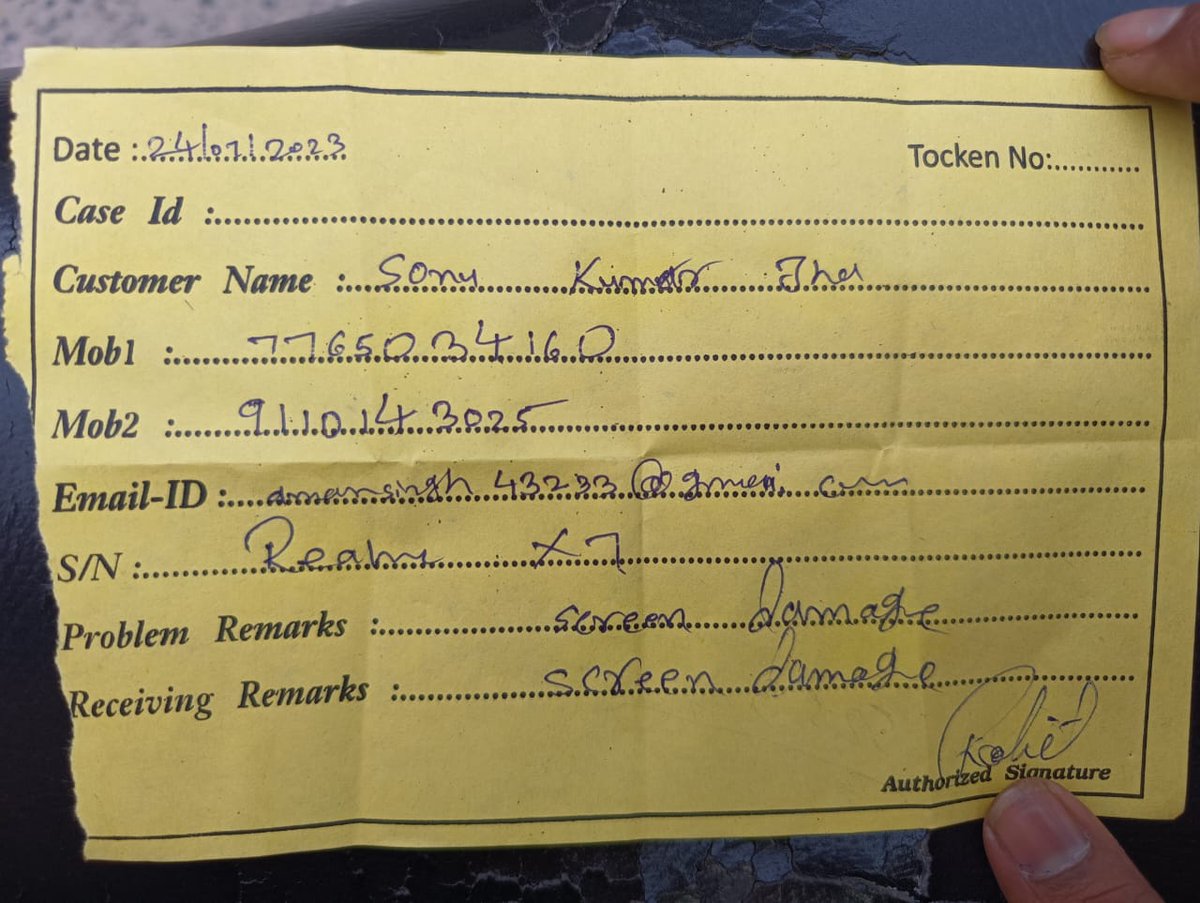 Date : 24/07/2023 Tocken No:...........
Case Id :...........
Customer Name : Sonu Kumar Jha
Mob1 : 7765034160
Mob2 : 9110143025
Email-ID : amansingh 43233@gmail.com
S/N : Realme X7
Problem Remarks : screen damage
Receiving Remarks : screen damage
Rohit
Authorized Signature